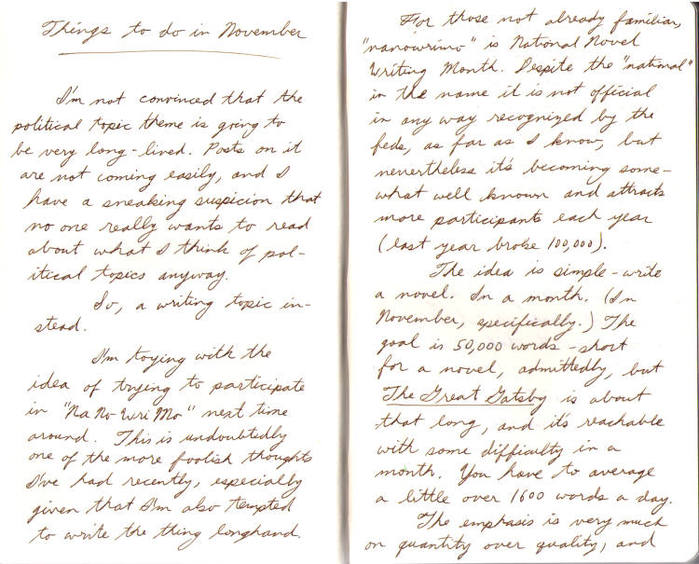 Things to do in November
I'm not convinced that the
political topic theme is going to
be very long-lived. Posts on it
are not coming easily, and I
have a sneaking suspicion that
no one really wants to read
about what I think of pol-
itical topics anyway.
So, a writing topic in-
stead.
I'm toying with the
idea of trying to participate
in "NaNoWriMo" next time
around. This is undoubtedly
one of the more foolish thoughts
I've had recently, especially
given that I'm also tempted
to write the thing longhand.
For those not already familiar,
"nanowrimo" is National Novel
Writing Month. Despite the "national"
in the name it is not official
in any way recognized by the
feds, as far as I know, but
nevertheless it's becoming some-
what well known and attracts
more participants each year
(last year broke 100,000).
The idea is simple - write
a novel. In a month. (In
November, specifically.) The
goal is 50,000 words - short
for a novel, admittedly, but
The Great Gatsby is about
that long, and it's reachable
with some difficulty in a
month. You have to average
a little over 1600 words a day.
The emphasis is very much
on quantity over quality, and